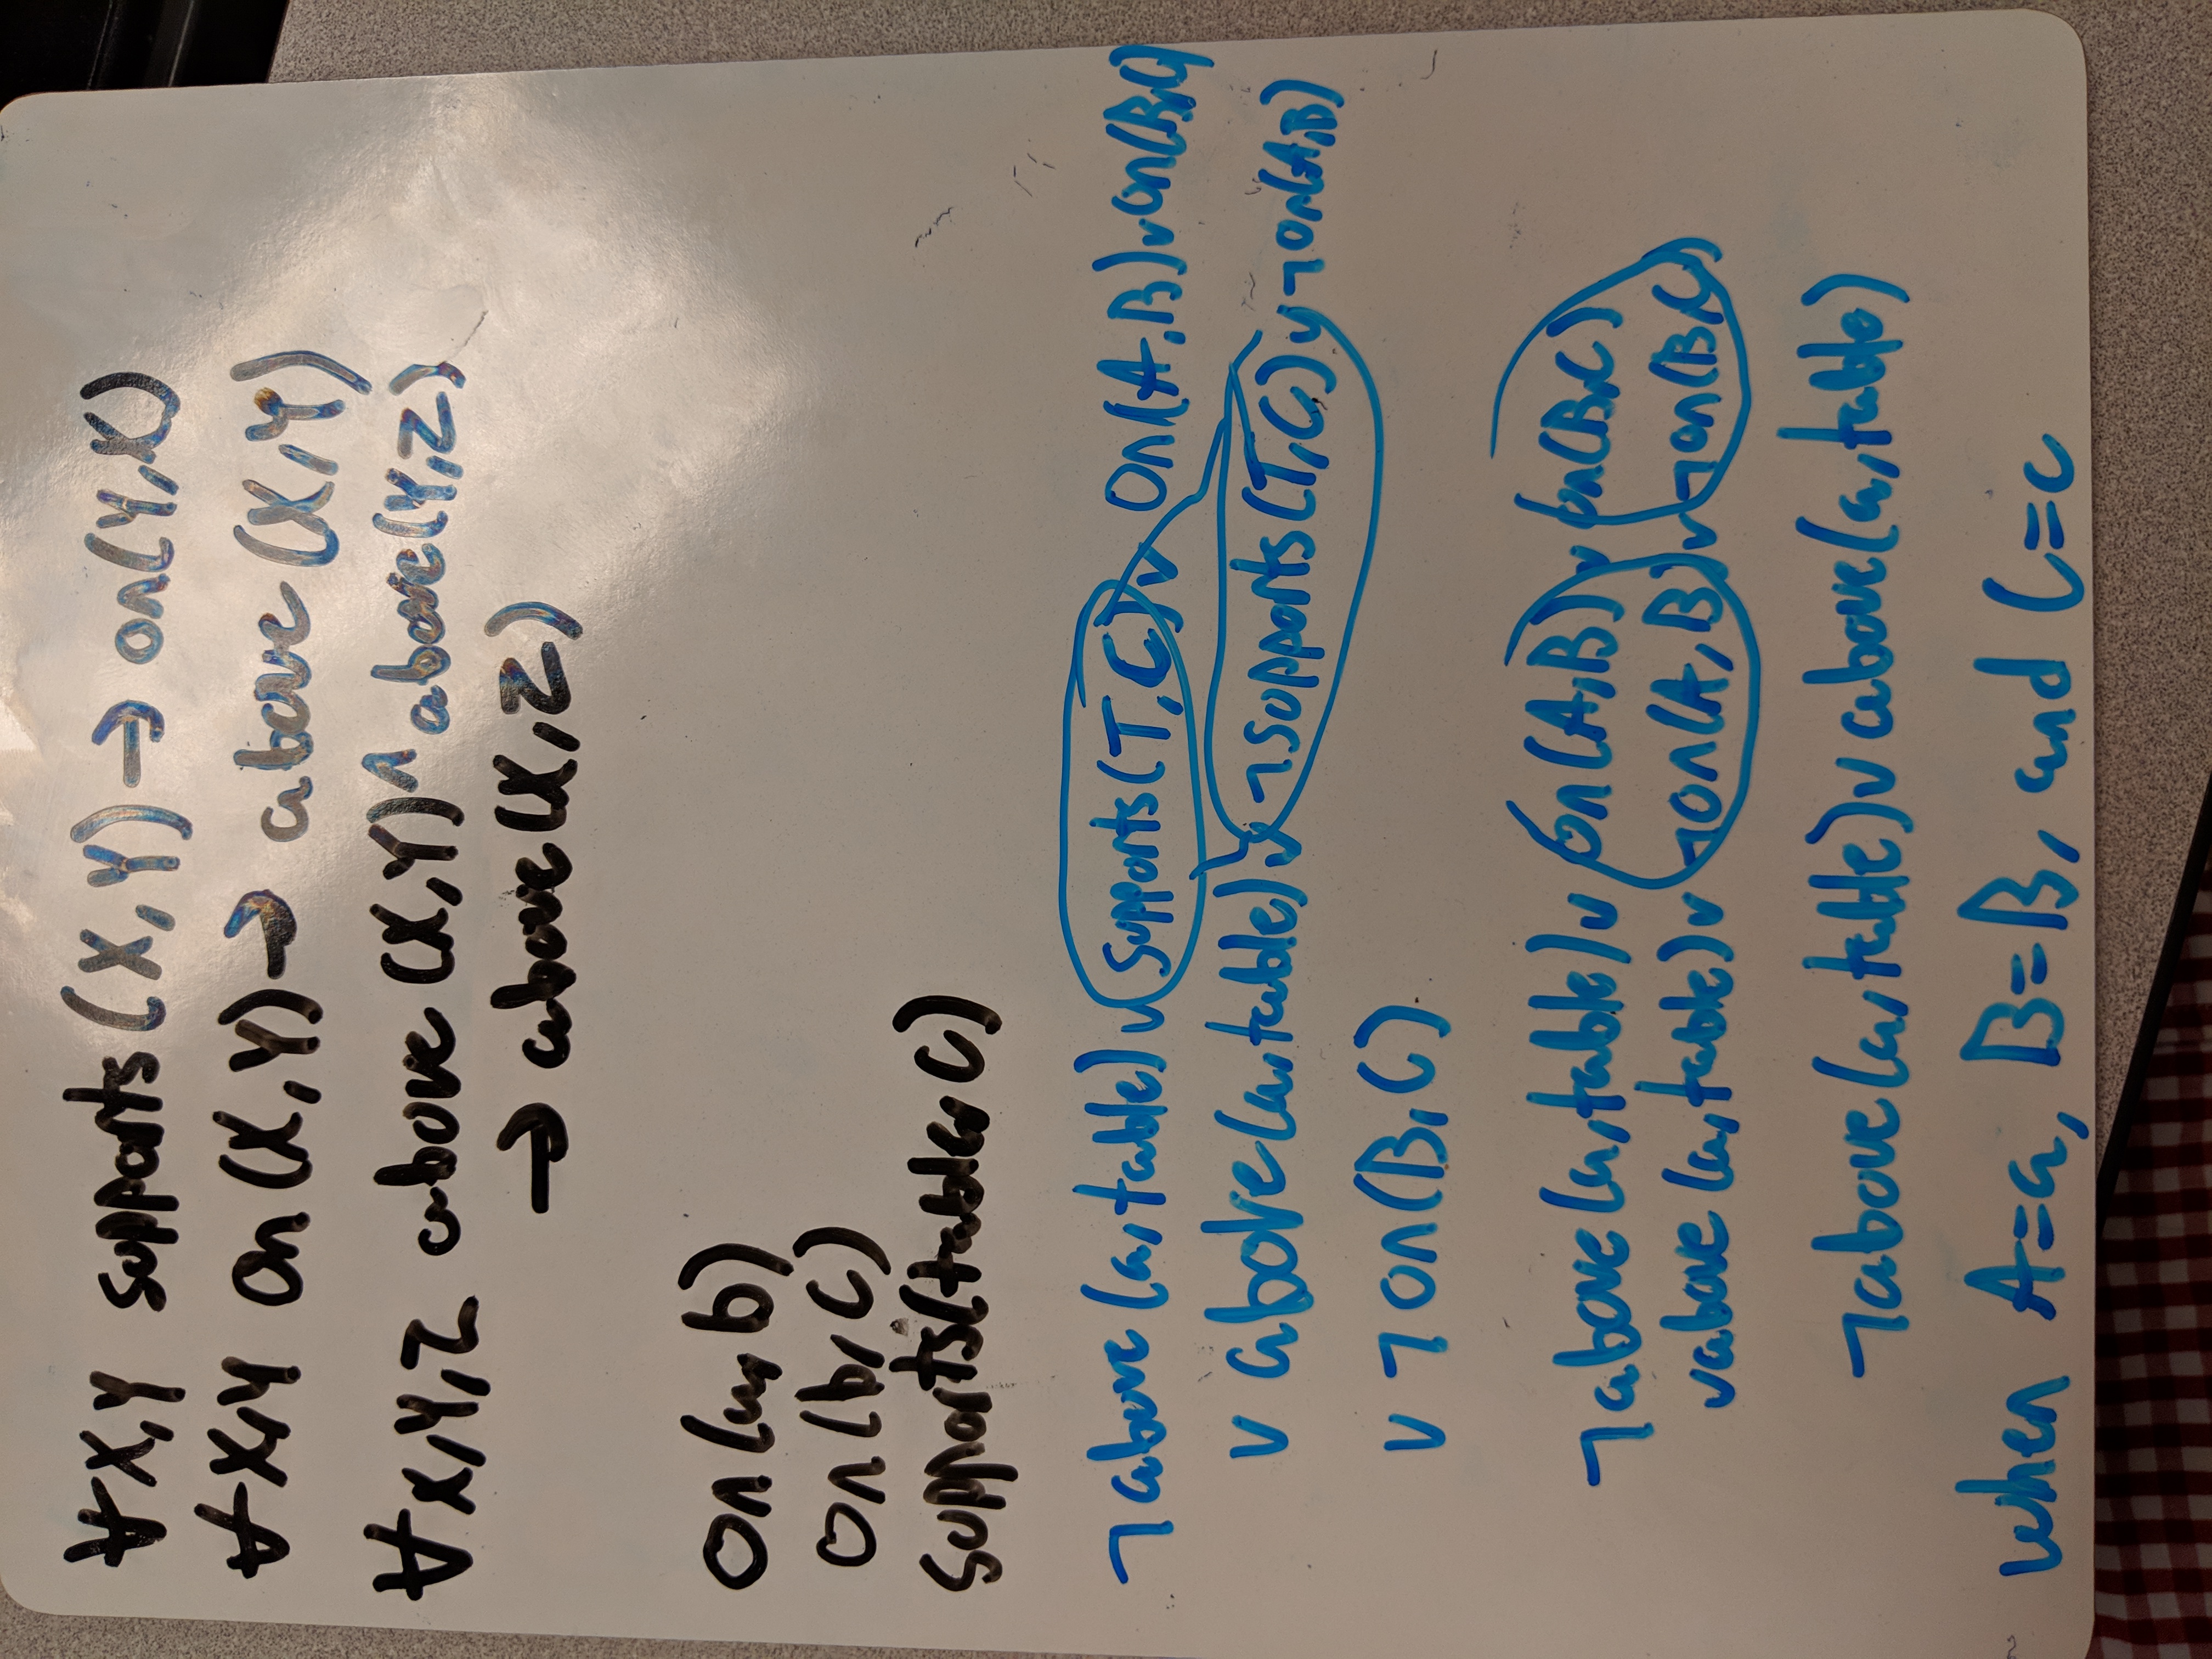 ∀X,Y supports(X,Y)→on(Y,X)
∀X,Y on(X,Y)→above(X,Y)
∀X,Y,Z above(X,Y)∧above(Y,Z)
→above(X,Z)
on(a,b)
on(b,c)
supports(table,c)
¬above(a,table)∨supports(T,C)∨on(A,B)∨on(B,C)
∨above(a,table)∨¬supports(T,C)∨¬on(A,B)
∨¬on(B,C)
¬above(a,table)∨on(A,B)∨on(B,C)
∨above(a,table)∨¬on(A,B)∨¬on(B,C)
¬above(a,table)∨above(a,table)
when A=a, B=B, and C=c